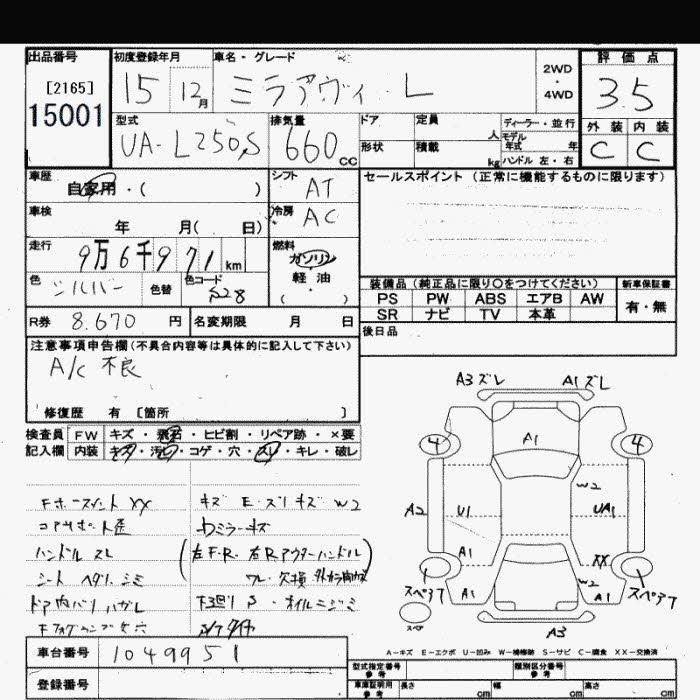 出品番号
[2165]
15001
初度登録年月
15 12月
車名・グレード
ミラアヴィ L
2WD
・
4WD
評価点
3.5
外装 内装
C C
型式
UA-L250S
排気量
660cc
ドア
定員
人
形状
積載
kg
ディーラー・並行
モデル年式 年
ハンドル 左・右
車歴
自家用・( )
シフト
AT
車検
年 月( 日)
冷房
AC
走行
9万6千971km
燃料
ガソリン
軽油
( ・ )
色
シルバー
色替
色コード
S28
R券 8.670 円
名変期限 月 日
セールスポイント(正常に機能するものに限ります)
装備品(純正品に限り○をつけてください)
新車保証書
PS PW ABS エアB AW
SR ナビ TV 本革
有・無
後日品
注意事項申告欄(不具合内容等は具体的に記入して下さい)
A/C 不良
修復歴 有 [箇所 ]
検査員記入欄
FW キズ・飛石・ヒビ割・リペア跡・×要
内装 キズ・汚レ・コゲ・穴・スレ・キレ・破レ
XX
コアサポート歪
ハンドル スレ
シート ヘタリ シミ
ドア内バリ ハガレ
キズ E・ズリキズ W2
左F・R・右Rアウターハンドル
ワレ・欠損
下廻り S・オイルニジミ
車台番号 1049951
登録番号
A3ズレ A1ズレ
4 A1 4
W2
A2 U1 UA1
A1 XX
W2
スペアT A1 A1 スペアT
スペア
A3
A-キズ E-エクボ U-凹み W-補修跡 S-サビ C-腐食 XX-交換済
型式指定番号 参考
類別区分番号 参考
車庫証明用 参考
長さ cm 幅 cm 高さ cm